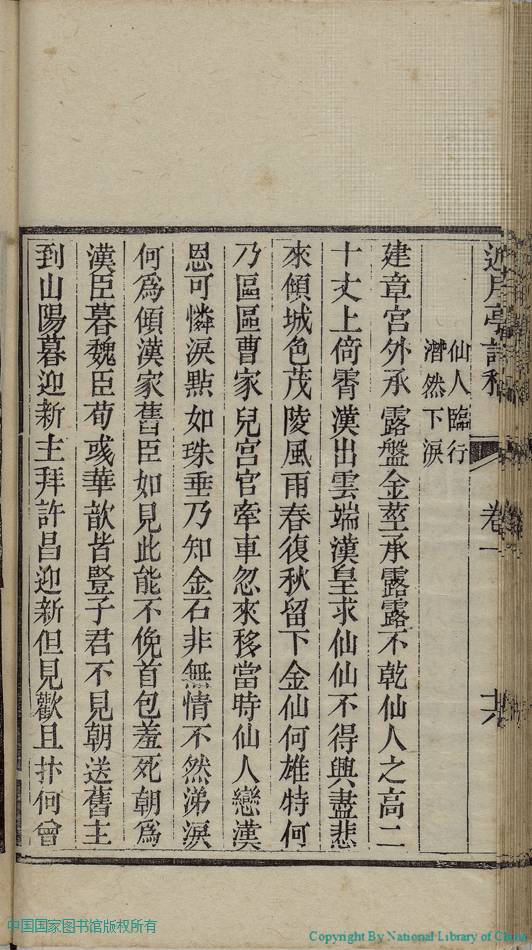 近月亭詩稿 卷一 十六
仙人臨行
潸然下淚
建章宮外承露盤金莖承露露不乾仙人之高二
十丈上倚霄漢出雲端漢皇求仙仙不得興盡悲
來傾城色茂陵風雨春復秋留下金仙何雄特何
乃區區曹家兒宮官牽車忽來移當時仙人戀漢
恩可憐淚點如珠垂乃知金石非無情不然涕淚
何為傾漢家舊臣如見此能不俛首包羞死朝為
漢臣暮魏臣荀彧華歆皆豎子君不見朝送舊主
到山陽暮迎新主拜許昌迎新但見歡且抃何曾
中国国家图书馆版权所有
Copyright By National Library of China